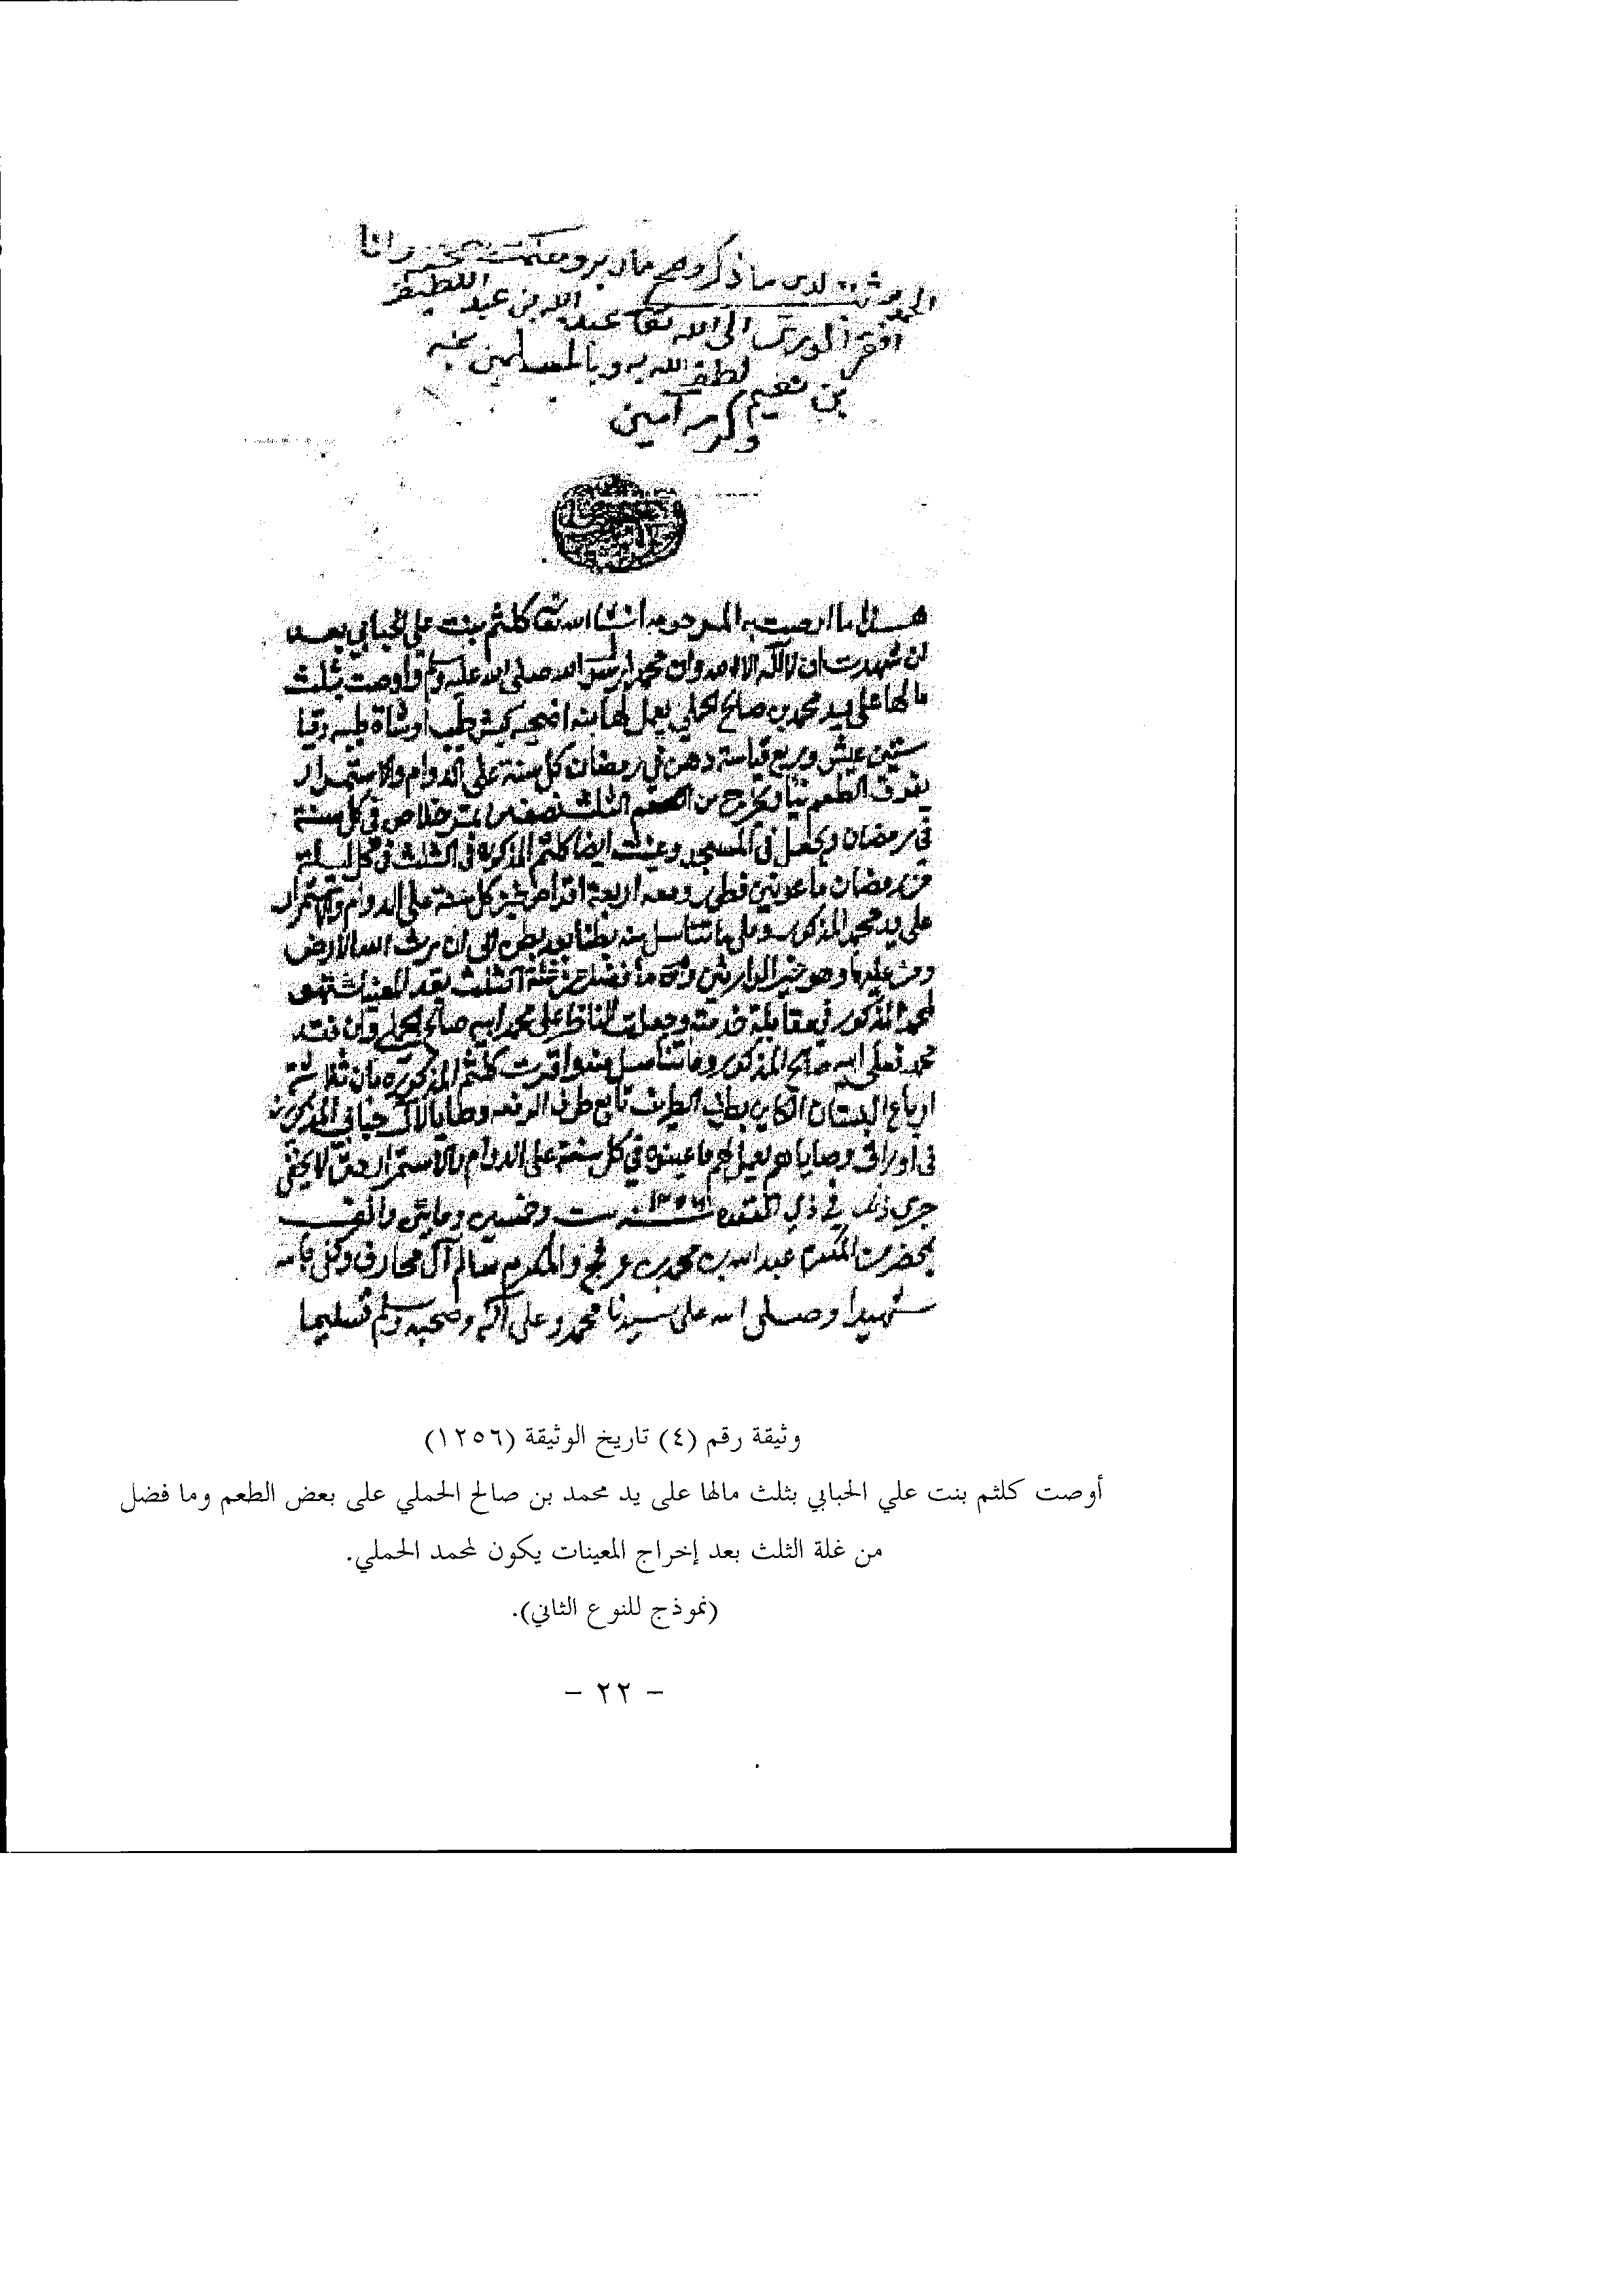 الحمد لله ثبت لدي ما ذكر وصح ما زبر وحكمت بصحته وانا
افقر الورى الى الله تعالى عبد الله بن عبد اللطيف
بن نعيم لطف الله به وبالمسلمين بمنه
وكرمه آمين
هذا ما اوصت به المرحومه انشا الله تعالى كلثم بنت علي الحبابي بعد
ان شهدت ان لا اله الا الله وان محمدا رسول الله صلى الله عليه وسلم واوصت بثلث
مالها على يد محمد بن صالح الحملي يعمل لها منه اضحيه كبش طيب او شاة طيبه وقيا
ستين عيش وربع قياسة دهن في رمضان كل سنة على الدوام والاستمرار
يفرق الطعم ويخرج من الثلث نصف من تمر خلاص في كل سنة
في رمضان ويجعل في المسجد وعينت ايضا كلثم المذكورة في الثلث في كل ليلة
من رمضان ماعونين فطور ومعه اربعة اقراص خبز كل سنة على الدوام والاستمرار
على يد محمد المذكور وعلى ما تناسل منه بطنا بعد بطن الى ان يرث الله الارض
ومن عليها وهو خير الوارثين وما فضل من غلة الثلث بعد المعينات فهو
لمحمد المذكور في مقابلة خدمته وجعلت الناظر على محمد ابيه صالح الحملي وان فقد
محمد فعلى ابيه صالح المذكور وما تناسل منه واقرت كلثم المذكورة بان ثلاثة
ارباع البستان الكاين بطرف تابع طرف الرفعه وصايا لال حبابي المذكورين
في اوراق وصاياهم يعمل لهم ما عينوه في كل سنة على الدوام والاستمرار حتى لا يخفى
جرى ذلك في ذي القعده ١٢٥٦ سنه ست وخمسين ومايتين والف
بحضرت المكرم عبد الله بن محمد بن عرفج والمكرم سالم آل محارف وكفى بالله
شهيدا وصلى الله على سيدنا محمد وعلى آله وصحبه وسلم تسليما
وثيقة رقم (٤) تاريخ الوثيقة (١٢٥٦)
أوصت كلثم بنت علي الحبابي بثلث مالها على يد محمد بن صالح الحملي على بعض الطعم وما فضل
من غلة الثلث بعد إخراج المعينات يكون لمحمد الحملي.
(نموذج للنوع الثاني).
– ٢٢ –